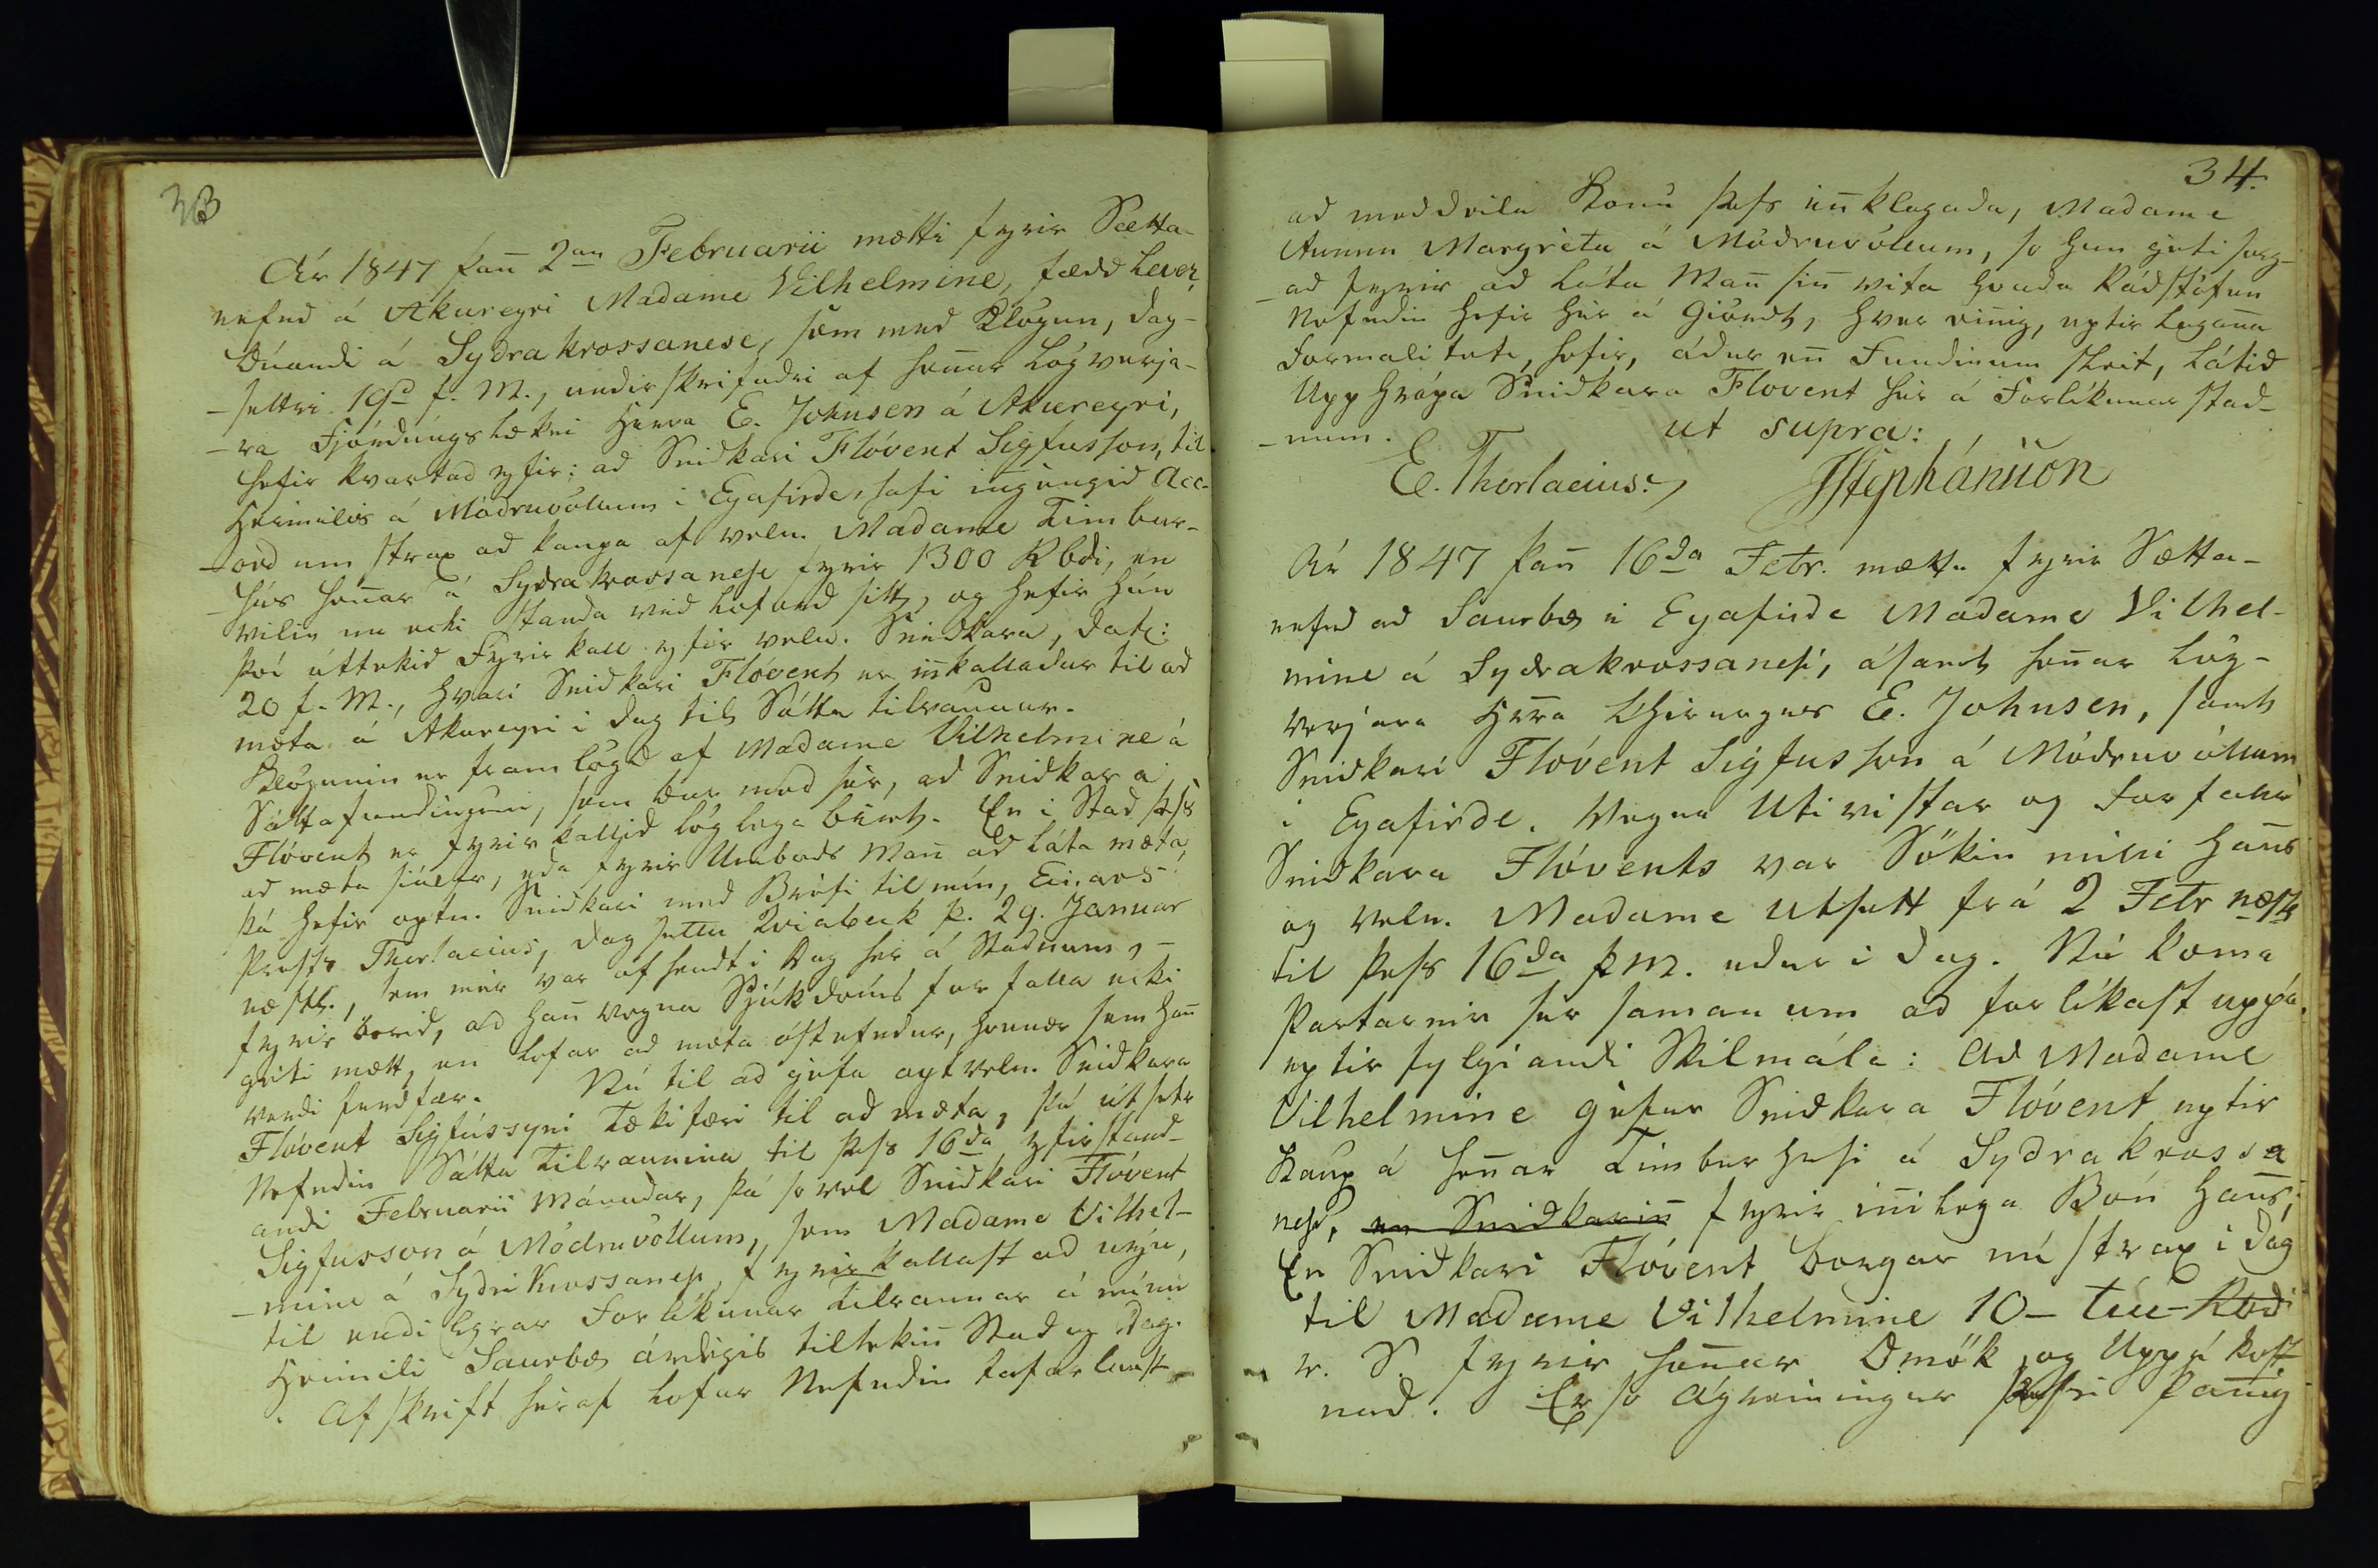 33
Ár 1847 þañ 2an Februarii mætti fyrir Sætta-
nefnd á Akureyri Madame Vilhelmine, fædd Lever,
búandi á Sydrakrossanese, sem med Klögun, dag-
-settri 19d f. M., undirskrifadri af heñar Lögverja-
-ra Fjórdúngslækni Herra E. Johnsen á Akureyri,
hefir kvartad yfir: ad Snidkari Flóvent Sigfusson, til
Heimilis á Mödruvöllum i Eyafirde, hafi iñgengid Acc-
-ord um strax ad kaupa af veln. Madame Timbur-
-hús heñar á Sydrakrossanese fyrir 1300 Rbdi, en
vilie nu ecki standa vid Loford sitt, og hefir hún
því úttekid Fyrirkall yfir veln. Snidkara, dat:
20 f. M., hvari Snidkari Flovent er iñkalladur til ad
mæta á Akureyri i dag til Sátta tilraunar.
Klögunin er framlögd af Madame Vilhelmine á
Sáttafundinum, sem ber med sér, ad Snidkara
Flóvent er fyrirkallid löglega birt. En i Stad þess
ad mæta siálfur, eda fyrir Umbods Mañ ad láta mæta,
þá hefir optn. Snidkari med Bréfi til mín, Einars
Prests Thorlacius, dagsettu Kviabeck þ. 29. Januar
næstl., sem mér var afhendt i Dag hér á Stadnum,
fyrir borid, ad hañ vegna Sjúkdóms forfalla ecki
gæti mætt, en lofar ad mæta óstefndur, hvenær sem hañ
verdi ferdfær. Nú til ad géfa opt veln. Snidkara
Flóvent Sigfússyni Tækifæri til ad mæta, þá útsetr
Nefndin Sátta Tilraunina til þess 16da yfirstand-
andi Februarii Mánudar, þá so vel Snidkari Flóvent
Sigfusson á Mödruvöllum, sem Madame Vilhel-
-mine á Sydri Krossanesi, fyrirkallast ad nýu,
til endilegrar Forlíkunar Tilraunar á mínu
Heimili Saurbæ árdegis tiltekiñ Stad og Dag.
Afskrift héraf lofar Nefndin tafarlaust
34.
ad meddeila Konu þess iñklagada, Madame
Aunnu Margrétu á Mödruvöllum, so hun géti sorg-
-ad fyrir ad láta Mañ siñ vita hvada Rádstöfun
Nefndin hefir hér á giördt, hver eiñig, eptir Lagaña
Formalitete, hefir, ádur eñ Fundinum sleit, látid
Upphrópa Snidkara Flovent hér á Forlíkunar stad-
-num. ut supra:
E. Thorlacius. JStephánsson
Ár 1847 þañ 16da Febr. mættu fyrir Sætta-
nefnd ad Saurbæ i Eyafirde Madame Vilhel-
mine á Sydrakrossanesi, ásamt heñar Lög-
verjara Hrra Chirurgus E. Johnsen, samt
Snidkari Flóvent Sigfusson á Mödruvöllum
i Eyafirde. Vegna Utivistar og Forfalls
Snidkara Flóvents var Sökin milli hañs
og veln. Madame utsett frá 2 Febr næstl
til þess 16da þ.M. edur i dag. Nú koma
Partarnir sér saman um ad forlíkast uppá
eptir fylgiandi Skilmála: Ad Madame
Vilhelmine géfur Snidkara Flóvent eptir
Kaup á heñar Timburhúsi á Sydrakrossa
nesi, en Snidkariñ fyrir iñilega Bón hañs;
En Snidkari Flóvent borgar nú strax i dag
til Madame Vilhelmine 10- tíu- Rbdi
r. S. fyrir heñar Ómök og Uppákost
nad. Er so Agreiningur þessi þañig